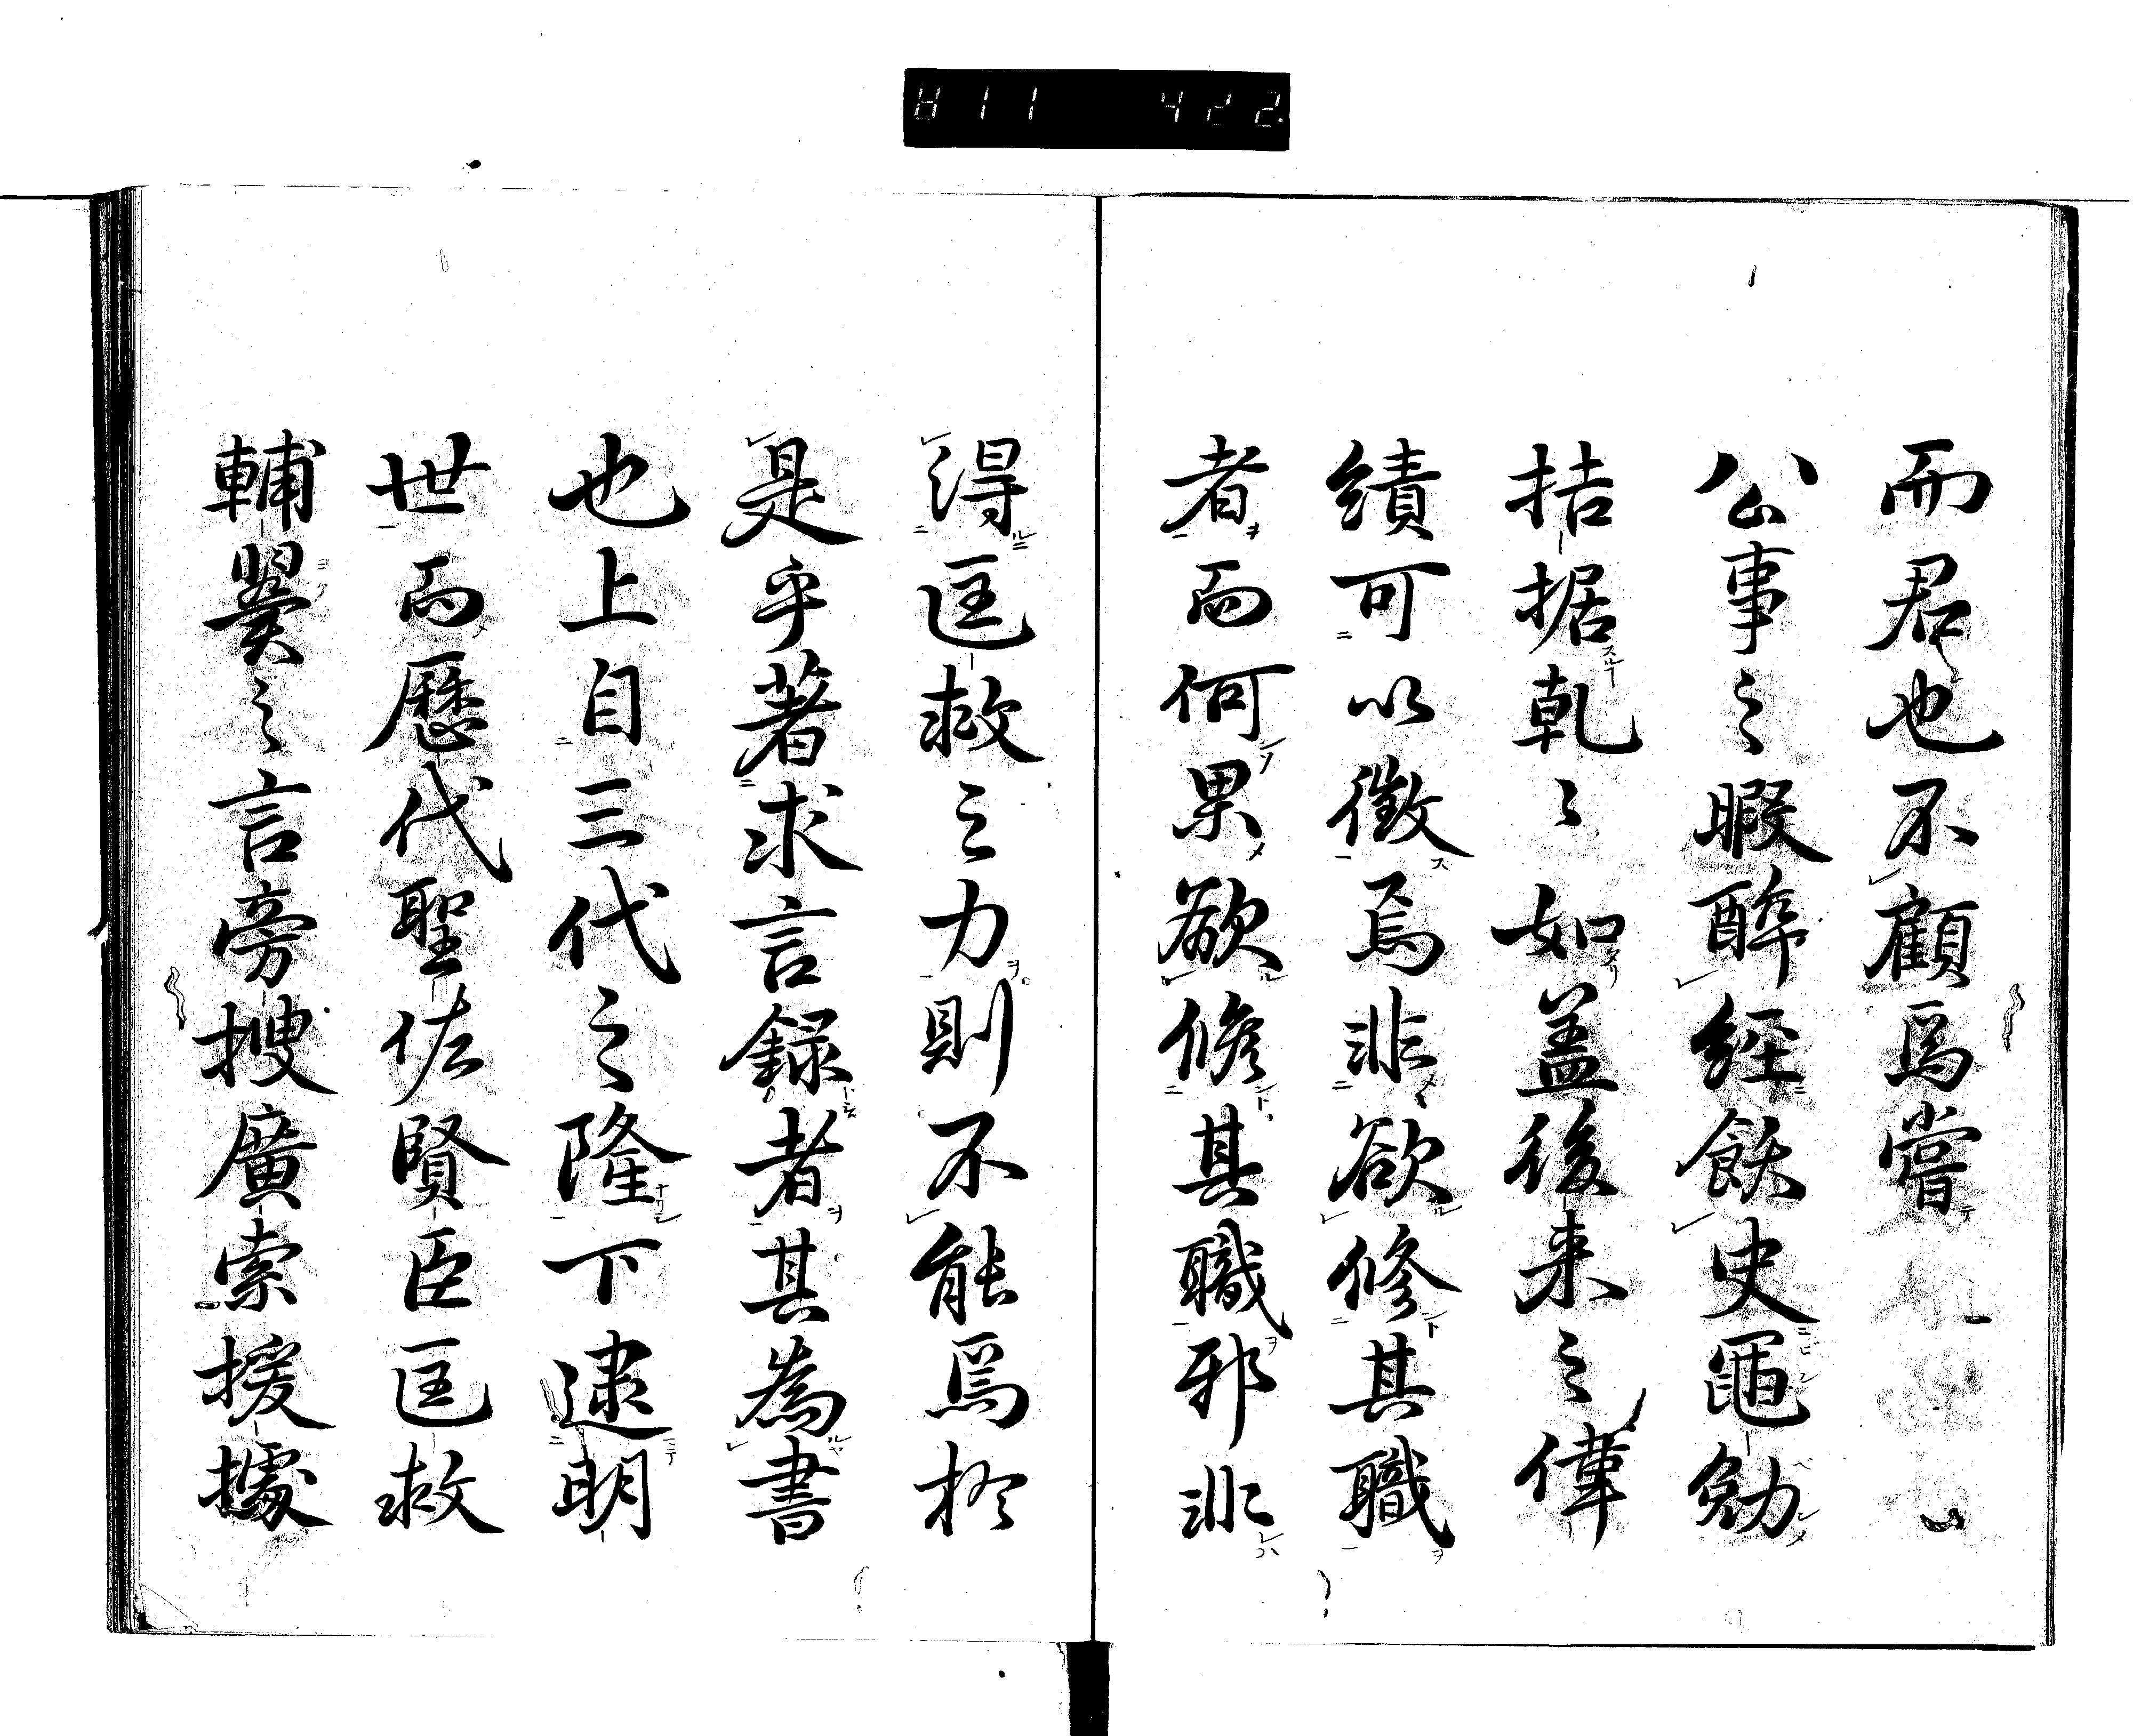 而君也不顧焉嘗
公事之暇酔經飫史黽勉
拮据乾〻如盖後来之偉
績可以徴焉非欲修其職
者而何果欲修其職邪非
得匡救之力則不能焉於
是乎著求言録者其為書
也上自三代之隆下逮明
世而歴代聖佐賢臣匡救
輔翼之言旁捜廣索援據